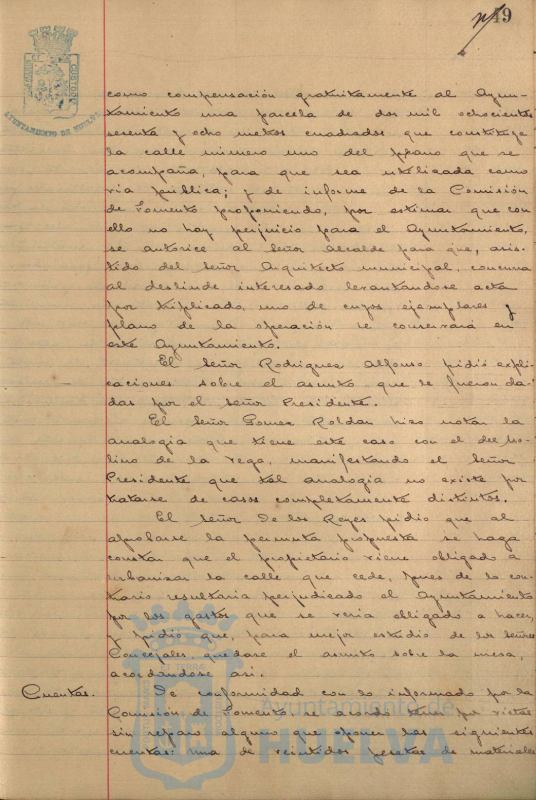 49
AYUNTAMIENTO DE HUELVA
como compensación gratuitamente al Ayun-
tamiento una parcela de dos mil ochocientos
sesenta y ocho metros cuadrados que constituye
la calle número uno del plano que se
acompaña, para que sea utilizada como
via pública; y de informe de la Comisión
de Fomento proponiendo, por estimar que con
ello no hay perjuicio para el Ayuntamiento,
se autorice al Señor Alcalde para que, asis-
tido del Señor Arquitecto municipal, concurra
al deslinde interesado levantandose acta
por triplicado, uno de cuyos ejemplares y
plano de la operación se conservará en
este Ayuntamiento.
El Señor Rodriguez Alfonso pidió expli-
caciones sobre el asunto que le fueron da-
das por el Señor Presidente.
El Señor Gomez Roldan hizo notar la
analogia que tiene este caso con el del Mo-
lino de la Vega, manifestando el Señor
Presidente que tal analogia no existe por
tratarse de casos completamente distintos.
El Señor de los Reyes pidio que al
aprobarse la permuta propuesta se haga
constar que el propietario viene obligado a
urbanizar la calle que cede, pues de lo con-
trario resultaria perjudicado el Ayuntamiento
por los gastos que se veria obligado a hacer,
y pidio que, para mejor estudio de los Señores
Concejales, quedase el asunto sobre la mesa,
acordandose asi.
Cuentas. De conformidad con lo informado por la
Comisión de Fomento, se acordó por vistas
sin reparo alguno que oponer las siguientes
cuentas: una de veintidos pesetas de materiales
Ayuntamiento de
HUELVA